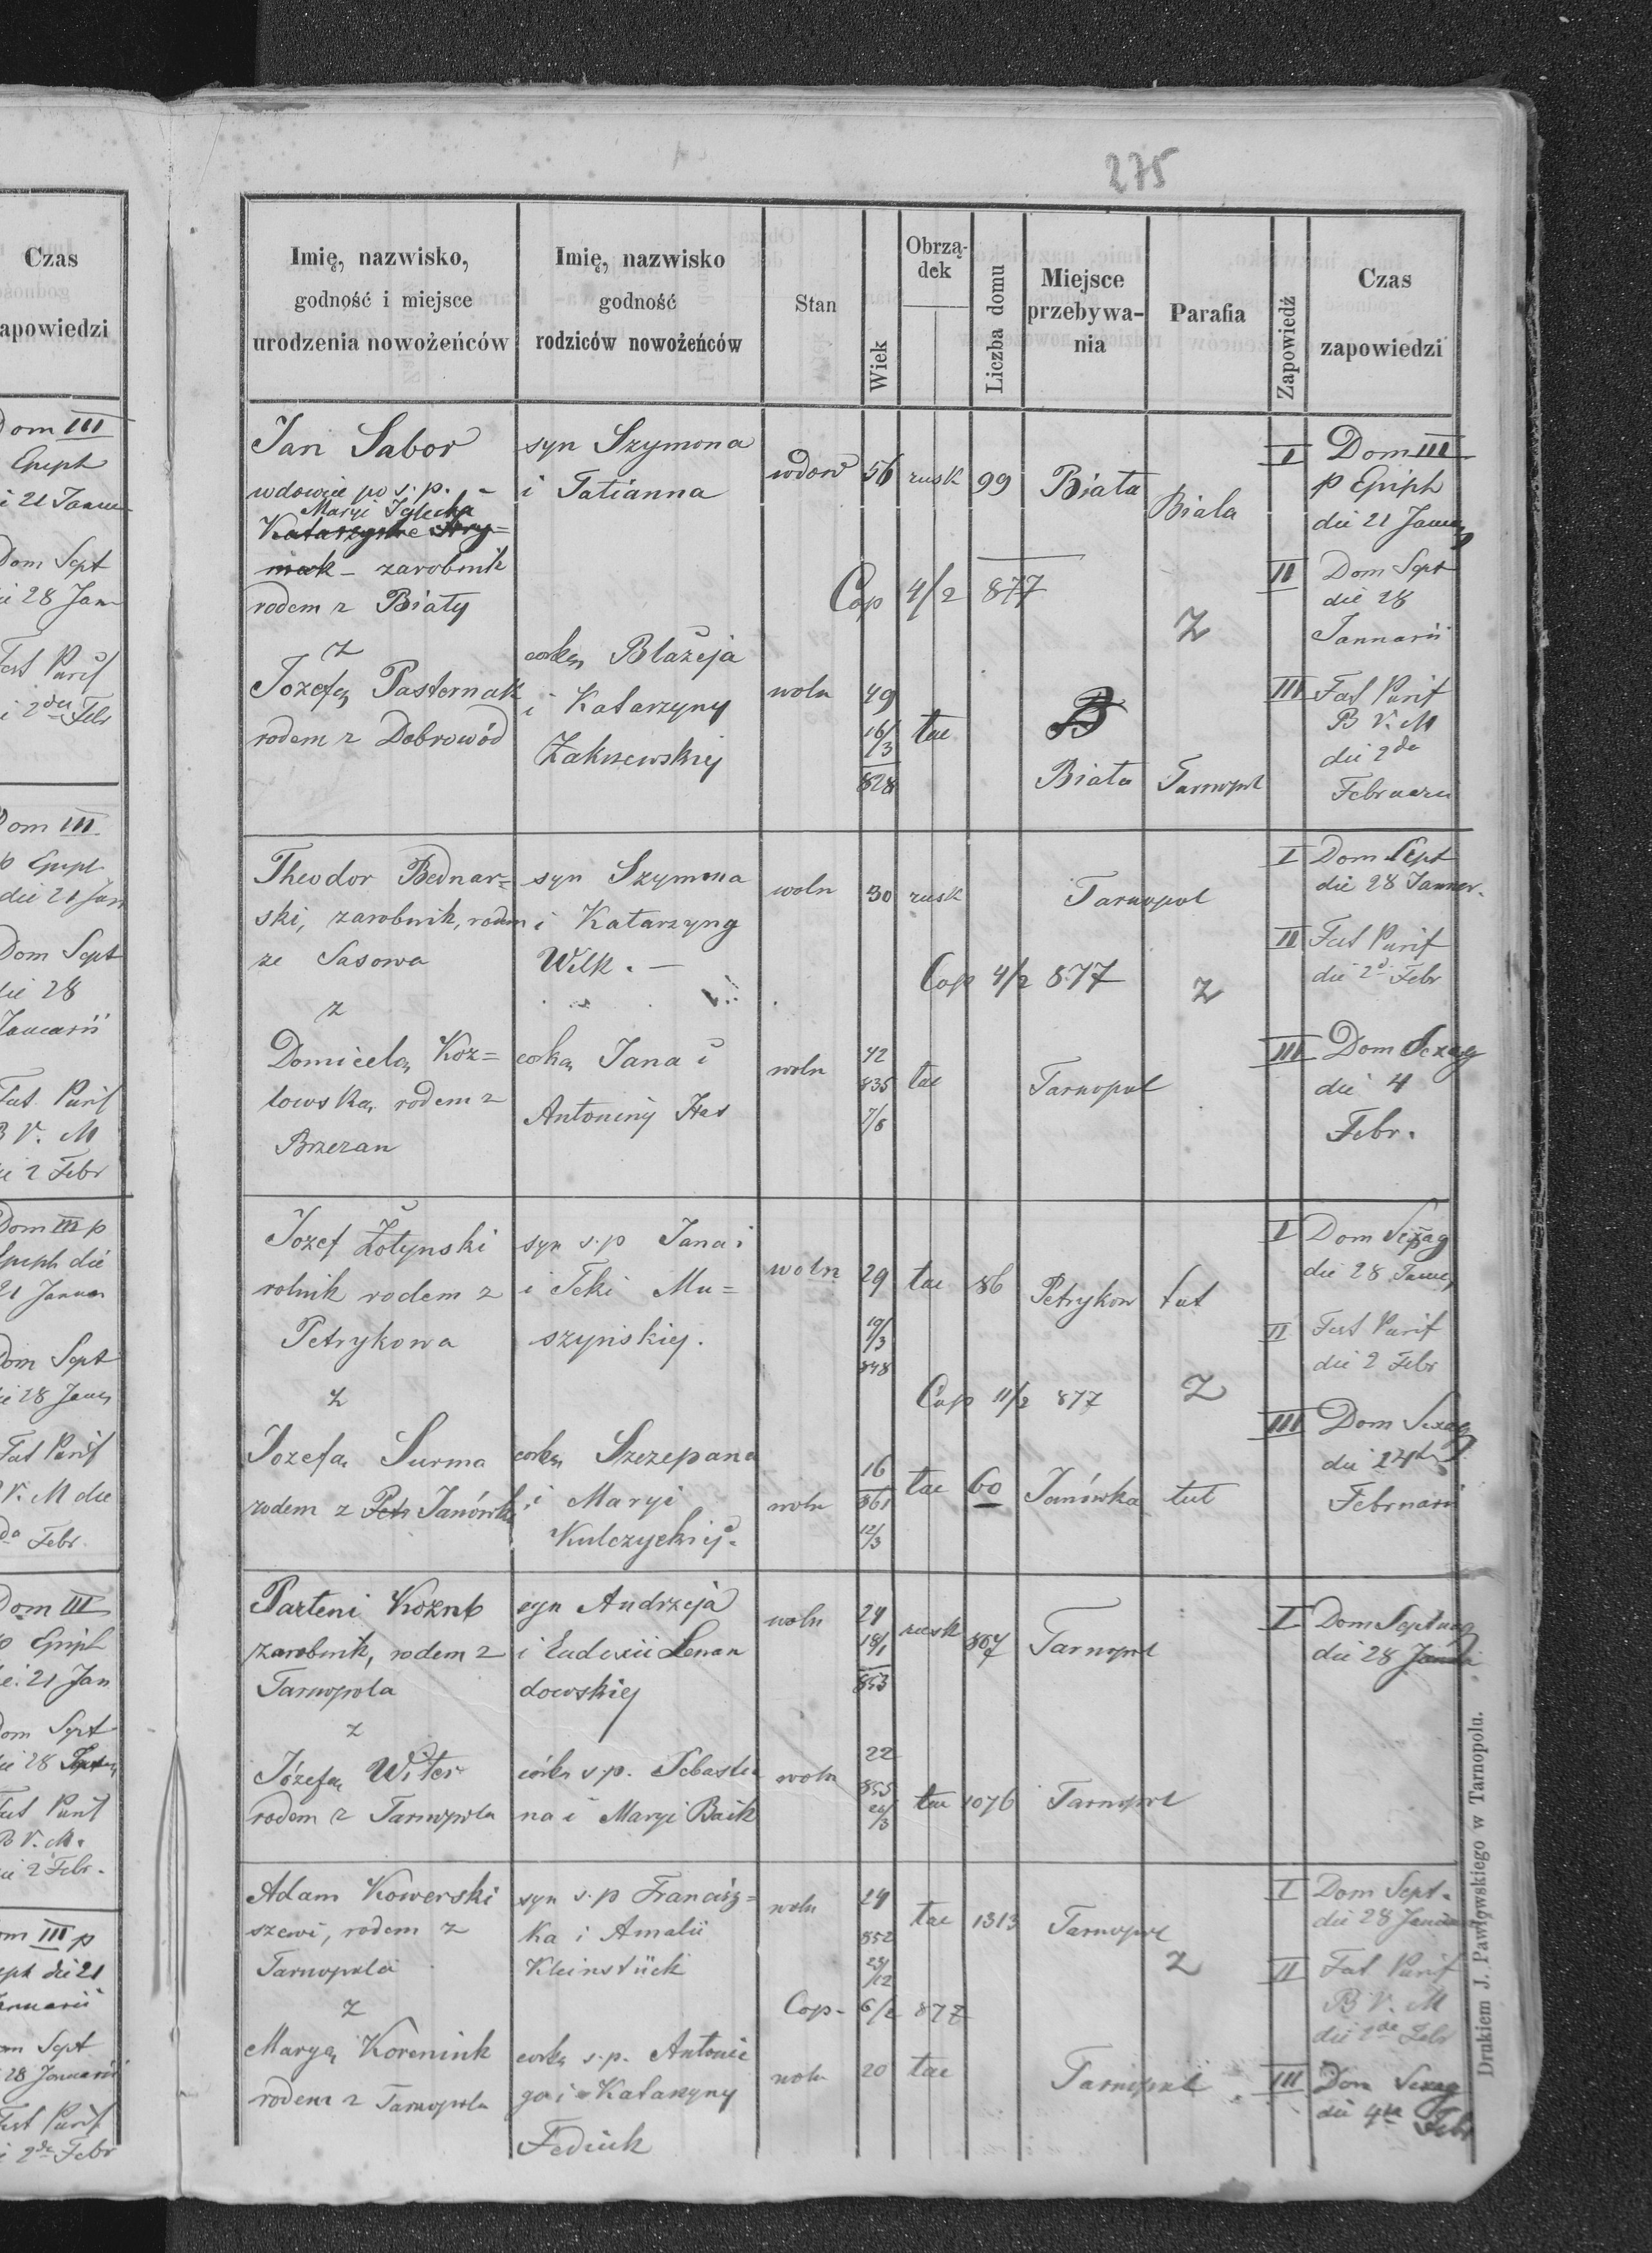 275
Czas
zapowiedzi
Dom III
Epiph
i 21 Januar
Dom Sept
28 Jan
Fest Purif
i 2da Febr
Dom III
p Epiph
die 21 Jan
Dom Sept
die 28
Januarii
Fest Purif
B V. M
2 Febr
Dom III p
Epiph die
21 Januar
Dom Sept
28 Januar
Fest Purif
V. M die
da Febr.
Dom III
p Epiph
21 Jan
Dom Sept
die 28
Fest Purif
B V. M.
die 2 Febr.
Dom III p
Epiph die 21
Januarii
Dom Sept
28 Januarii
Fest Purif
2da Febr
Imię, nazwisko,
godność i miejsce
urodzenia nowożeńców
Imię, nazwisko
godność
rodziców nowożeńców
Stan
Wiek
Obrzą-
dek
Liczba domu
Miejsce
przebywa-
nia
Parafia
Zapowiedź
Czas
zapowiedzi
Jan Sabor
wdowiec po s.p.
Maryi
Katarzynie
zarobnik
rodem z Biały
z
Jozefą Pasternak
rodem z Dobrowód
syn Szymona
i Tatianna
corką Błażeja
i Katarzyny
Zakrzewskiej
wdow 56 rusk 99 Biała Biala
Cop 4/2 877
z
woln 49
16/3
828
łac
B
Biała Tarnopol
I Dom III
p Epiph
die 21 Januar
II Dom Sept
die 28
Januarii
III Fest Purif
B V. M
die 2da
Februarii
Theodor Bednar=
ski, zarobnik, rodem
ze Sasowa
z
Domicelą Koz=
łowską rodem z
Brzezan
syn Szymona
i Katarzyny
Wilk. —
corką Jana i
Antoniny Has
woln 30 rusk Tarnopol
Cop 4/2 877 z
woln 42
835
7/5
łac Tarnopol
I Dom Sept
die 28 Januar.
II Fest Purif
die 2d Febr
III Dom Sexag
die 4
Febr.
Jozef Żołynski
rolnik rodem z
Petrykowa
z
Jozefa Surma
rodem z Petr Janówki
syn s.p Jana i
i Teki Mu=
szyńskiej.
corką Szczepana
i Maryi
Kulczyckiej.
woln 29
19/3
848
łac 86 Petrykow tut
Cop 11/2 877 z
woln 16
861
12/3
łac 60 Janówka tut
I Dom
die 28 Januar
II Fest Purif
die 2 Febr
III Dom Sexag
die
Februarii
Parteni Kozub
zarobnik, rodem z
Tarnopola
z
Józefą Witer
rodem z Tarnopola
syn Andrzeja
i Eudoxii Lenan
dowskiej
córką s.p. Sebastia
na i Maryi Baik
woln 24
18/1
853
rusk 807 Tarnopol
woln 22
855
łac 1076 Tarnopol
I Dom Septuag
die 28
Adam Kowerski
szewc, rodem z
Tarnopola
z
Maryą Koreniuk
rodem z Tarnopola
syn s.p Francisz=
ka i Amalii
Kleinstück
corką s.p. Antonie
go i Katarzyny
Fediuk
woln 24
852
23/12
łac 1313 Tarnopol
z
Cop. 6/2 877
woln 20 łac Tarnopol
I Dom Sept.
die 28
II Fest Purif
B V. M
die 2da Febr
III Dom Sexag
die 4ta Febr
Drukiem J. Pawłowskiego w Tarnopolu.